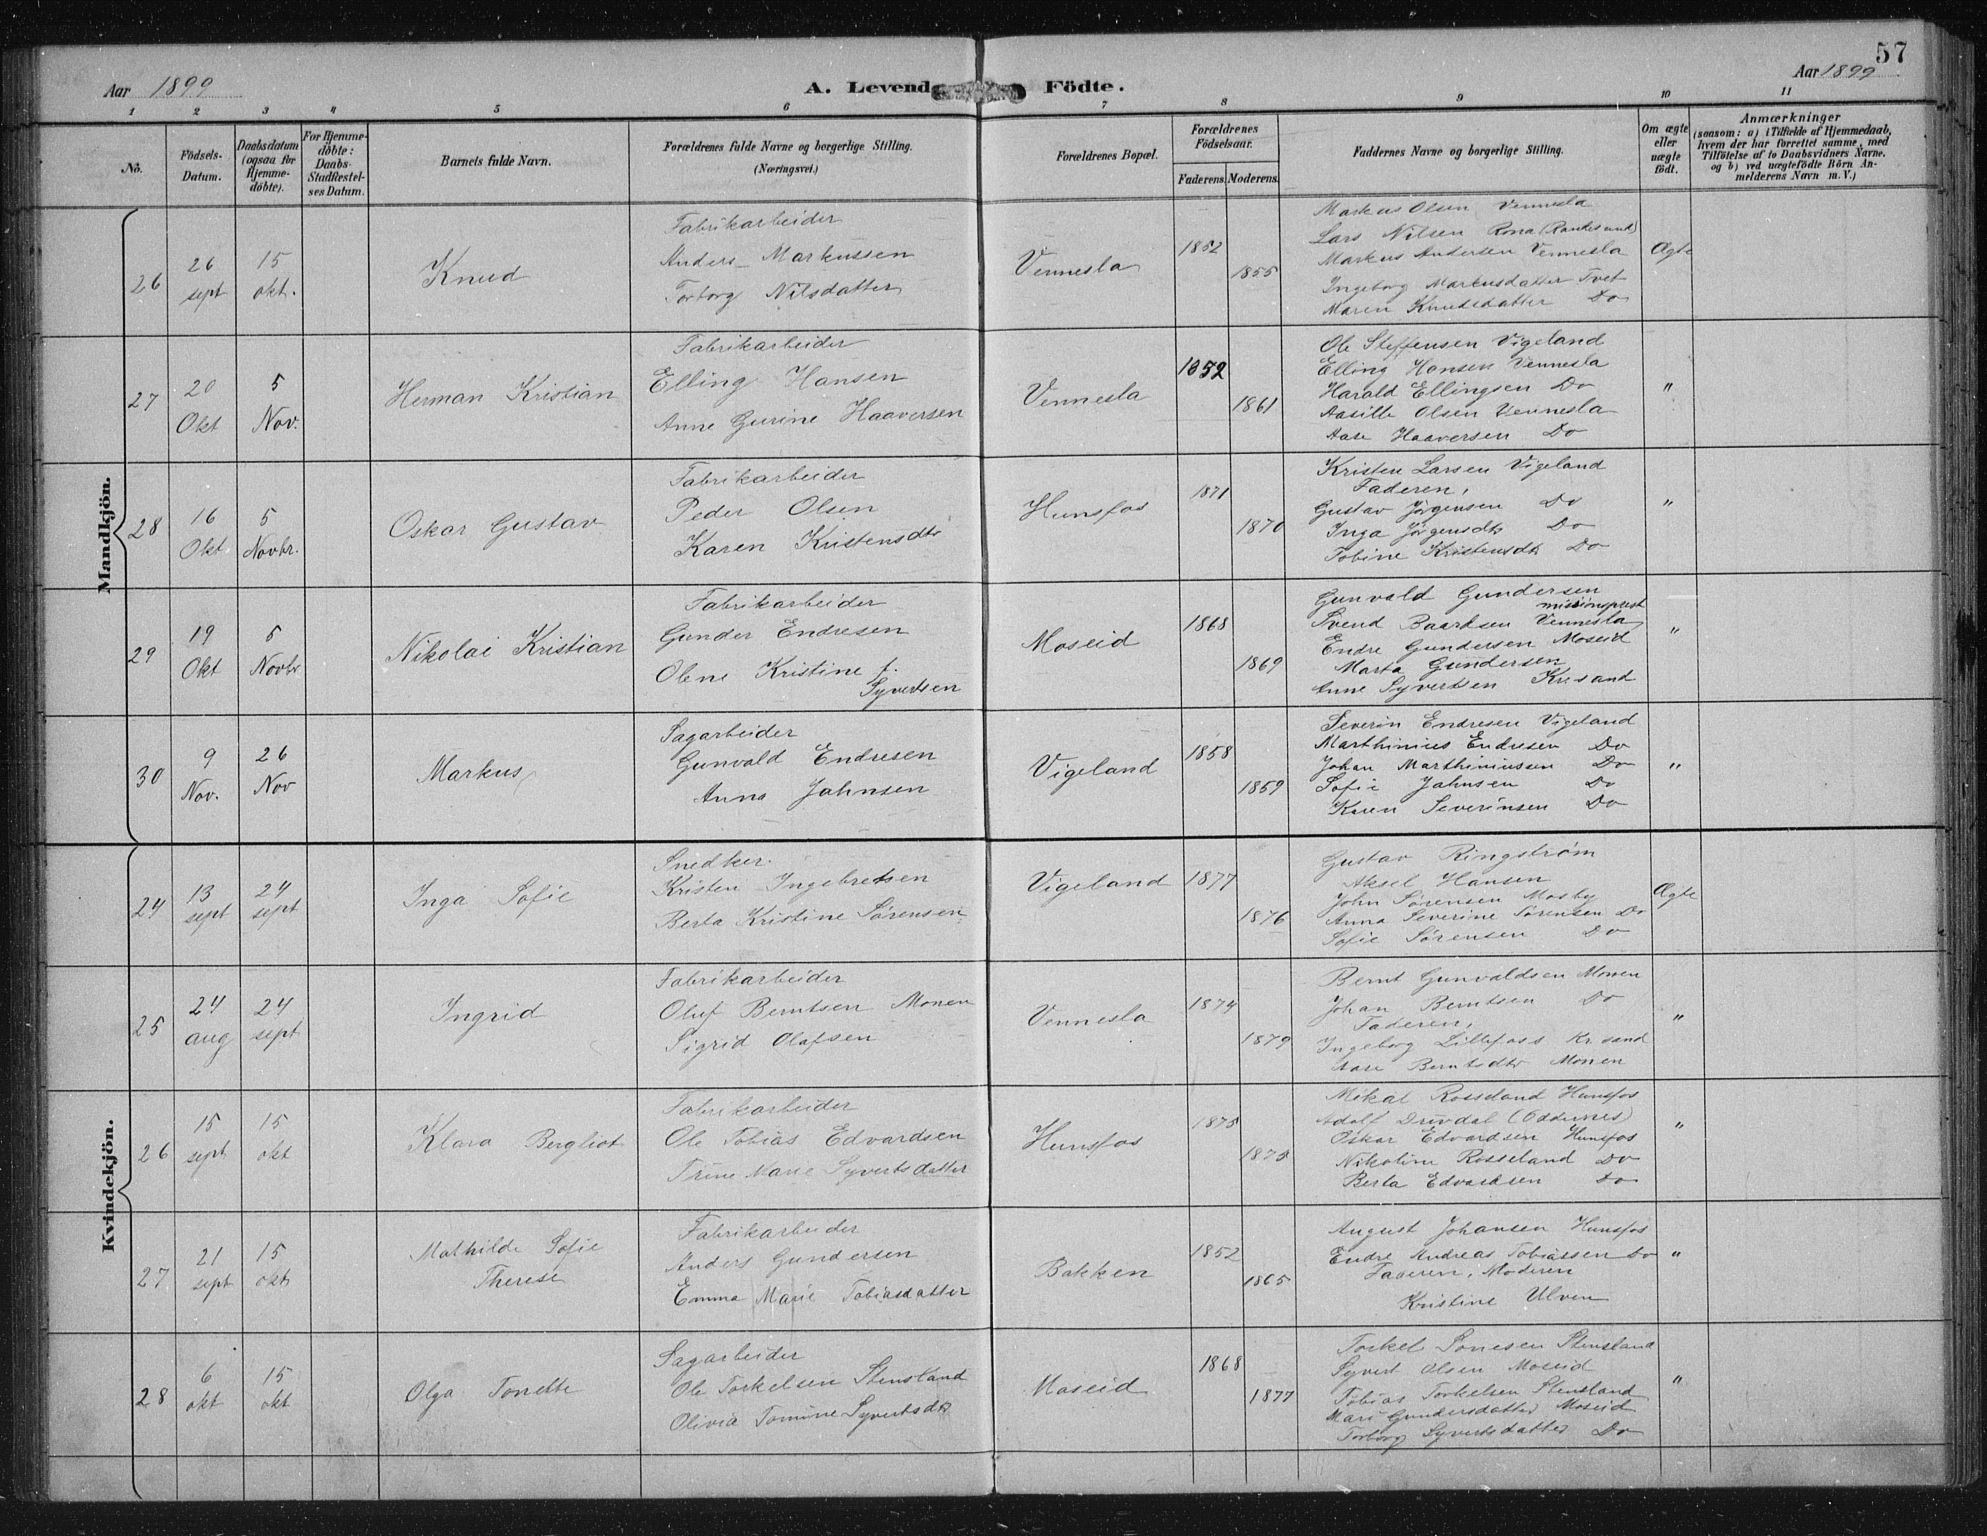 57
Aar 1899
A. Levende Födte.
Aar 1899
1 2 3 4 5 6 7 8 9 10 11
No.
Födsels-Datum.
Daabsdatum (ogsaa for Hjemme-döbte).
For Hjemme-döbte: Daabs-Stadfæstel-ses Datum.
Barnets fulde Navn.
Forældrenes fulde Navne og borgerlige Stilling.
(Næringsvei.)
Forældrenes Bopæl.
Forældrenes Födselsaar.
Faderens. Moderens.
Faddernes Navne og borgerlige Stilling.
Om ægte eller uægte födt.
Anmærkninger
(saasom: a) i Tilfælde af Hjemmedaab, hvem der har forrettet samme, med Tilföielse af to Daabsvidners Navne, og b) ved uægtefödte Börn An-melderens Navn m. V.)
Mandkjön.
26
26 sept
15 okt.
Knud
Fabrikarbeider
Anders Markussen
Torborg Nilsdatter
Vennesla
1852
1855
Markus Olsen Vennesla
Lars Nilsen Rona (Randesund)
Markus Andersen Vennesla
Ingeborg Markusdatter Tvet
Maren Knudsdatter Do
Ægte
27
20 Okt
5 Nov.
Herman Kristian
Fabrikarbeider
Elling Hansen
Anne Gurine Haaversen
Vennesla
1852
1861
Ole Steffensen Vigeland
Elling Hansen Vennesla
Harald Ellingsen Do
Aasille Olsen Vennesla
Aase Haaversen Do
"
28
16 Okt
5 Novbr.
Oskar Gustav
Fabrikarbeider
Peder Olsen
Karen Kristensdtr
Hunsfos
1871
1870
Kristen Larsen Vigeland
Faderen,
Gustav Jørgensen Do
Inga Jørgensdtr Do
Tobine Kristensdtr Do
"
29
19 Okt
5 Novbr
Nikolai Kristian
Fabrikarbeider
Gunder Endresen
Olene Kristine f. Syvertsen
Moseid
1868
1869
Gunvald Gundersen
missionpræst
Svend Baardsen Vennesla
Endre Gundersen Moseid
Marta Gundersen
Anne Syvertsen Kr.sand
"
30
9 Nov.
26 Nov
Markus
Sagarbeider
Gunvald Endresen
Anna Jahnsen
Vigeland
1858
1859
Severin Endresen Vigeland
Marthinius Endresen Do
Johan Marthiniussen Do
Sofie Jahnsen Do
Karen Severinsen Do
"
Kvindekjön.
24
13 sept
24 sept
Inga Sofie
Snedker.
Kristen Ingebretsen
Berta Kristine Sørensen
Vigeland
1877
1876
Gustav Ringstrøm
Aksel Hansen
John Sørensen Mosby
Anna Severine Sørensen Do
Sofie Sørensen Do
Ægte
25
24 aug
24 sept
Ingrid
Fabrikarbeider
Oluf Berntsen Monen
Sigrid Olafsen
Vennesla
1874
1879
Bernt Gunvaldsen Monen
Johan Berntsen Do
Faderen,
Ingeborg Lillefoss Kr.sand
Aase Berntsdtr Monen
"
26
15 sept
15 okt
Klara Bergliot
Fabrikarbeider
Ole Tobias Edvardsen
Trine Marie Syvertsdatter
Hunsfos
1875
Mikal Rosseland Hunsfos
Adolf Drivdal (Oddernes)
Oskar Edvardsen Hunsfos
Nikoline Rosseland Do
Berta Edvardsen Do
"
27
21 sept
15 okt
Mathilde Sofie Therese
Fabrikarbeider
Anders Gundersen
Emma Marie Tobiasdatter
Bakken
1852
1865
August Johansen Hunsfos
Endre Andreas Tobiassen Do
Faderen, Moderen
Kristine Ulven
"
28
6 okt
15 okt
Olga Tonette
Sagarbeider
Ole Torkelsen Stensland
Olivia Tomine Syvertsdtr
Moseid
1868
1877
Torkel Sonesen Stensland
Syvert Olsen Moseid
Tobias Torkelsen Stensland
Mari Gundersdatter Moseid
Torborg Syvertsdatter Do
"